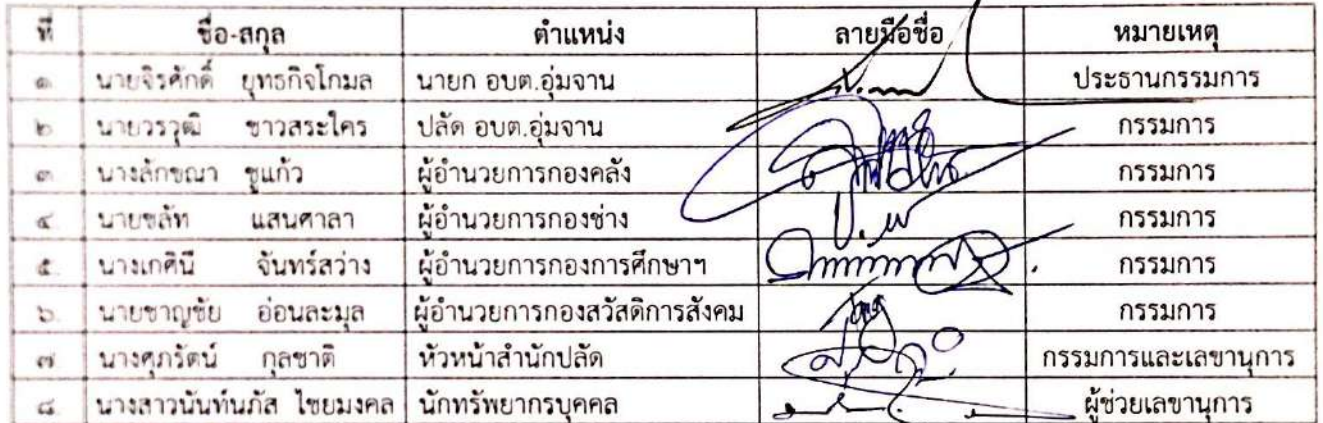 ที่ ชื่อ-สกุล ตำแหน่ง ลายมือชื่อ หมายเหตุ
๑. นายจิรศักดิ์ ยุทธกิจโกมล นายก อบต.อุ่มจาน ประธานกรรมการ
๒. นายวรวุฒิ ชาวสระใคร ปลัด อบต.อุ่มจาน กรรมการ
๓. นางลักขณา ชูแก้ว ผู้อำนวยการกองคลัง กรรมการ
๔. นายชลัท แสนศาลา ผู้อำนวยการกองช่าง กรรมการ
๕. นางเกศินี จันทร์สว่าง ผู้อำนวยการกองการศึกษาฯ กรรมการ
๖. นายชาญชัย อ่อนละมุล ผู้อำนวยการกองสวัสดิการสังคม กรรมการ
๗. นางศุภรัตน์ กุลชาติ หัวหน้าสำนักปลัด กรรมการและเลขานุการ
๘. นางสาวนันท์นภัส ไชยมงคล นักทรัพยากรบุคคล ผู้ช่วยเลขานุการ